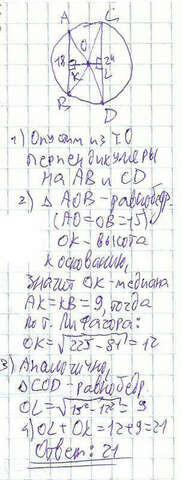 A C
O
18 24
K L
B D
1) Опустим из т.О
перпендикуляры
на AB и CD
2) △ AOB - равнобедр.
(AO=OB=15)
OK - высота
к основанию,
значит OK - медиана
AK=KB=9, тогда
по т. Пифагора:
OK=√225-81=12
3) Аналогично,
△COD - равнобедр.
OL=√15²-12²=9
4) OL+OK=12+9=21
Ответ: 21